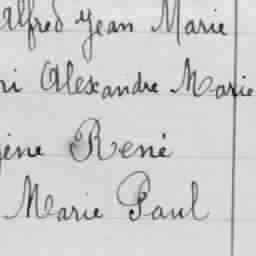 Alfred Jean Marie
ri Alexandre Marie
ène René
Marie Paul